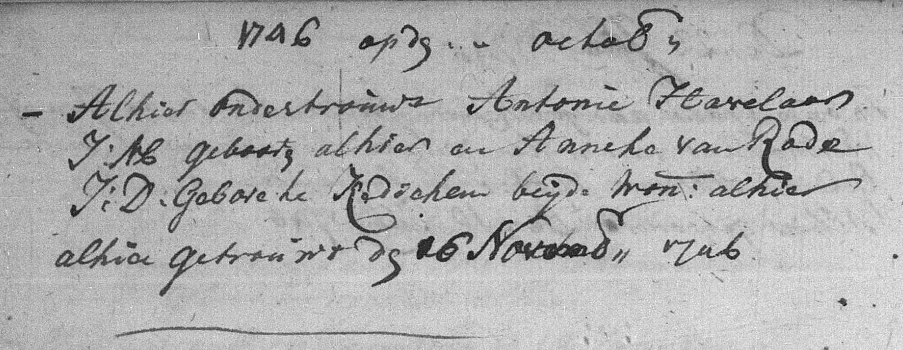 1746 opdg ... octob,,
- Alhier ondertrouwt Antonie Havelaar
J: M geboortg alhier en Anneke van Rade
J: D: Gebore te beÿde won: alhier
alhier getrouwt dg 16 Novemb,, 1746